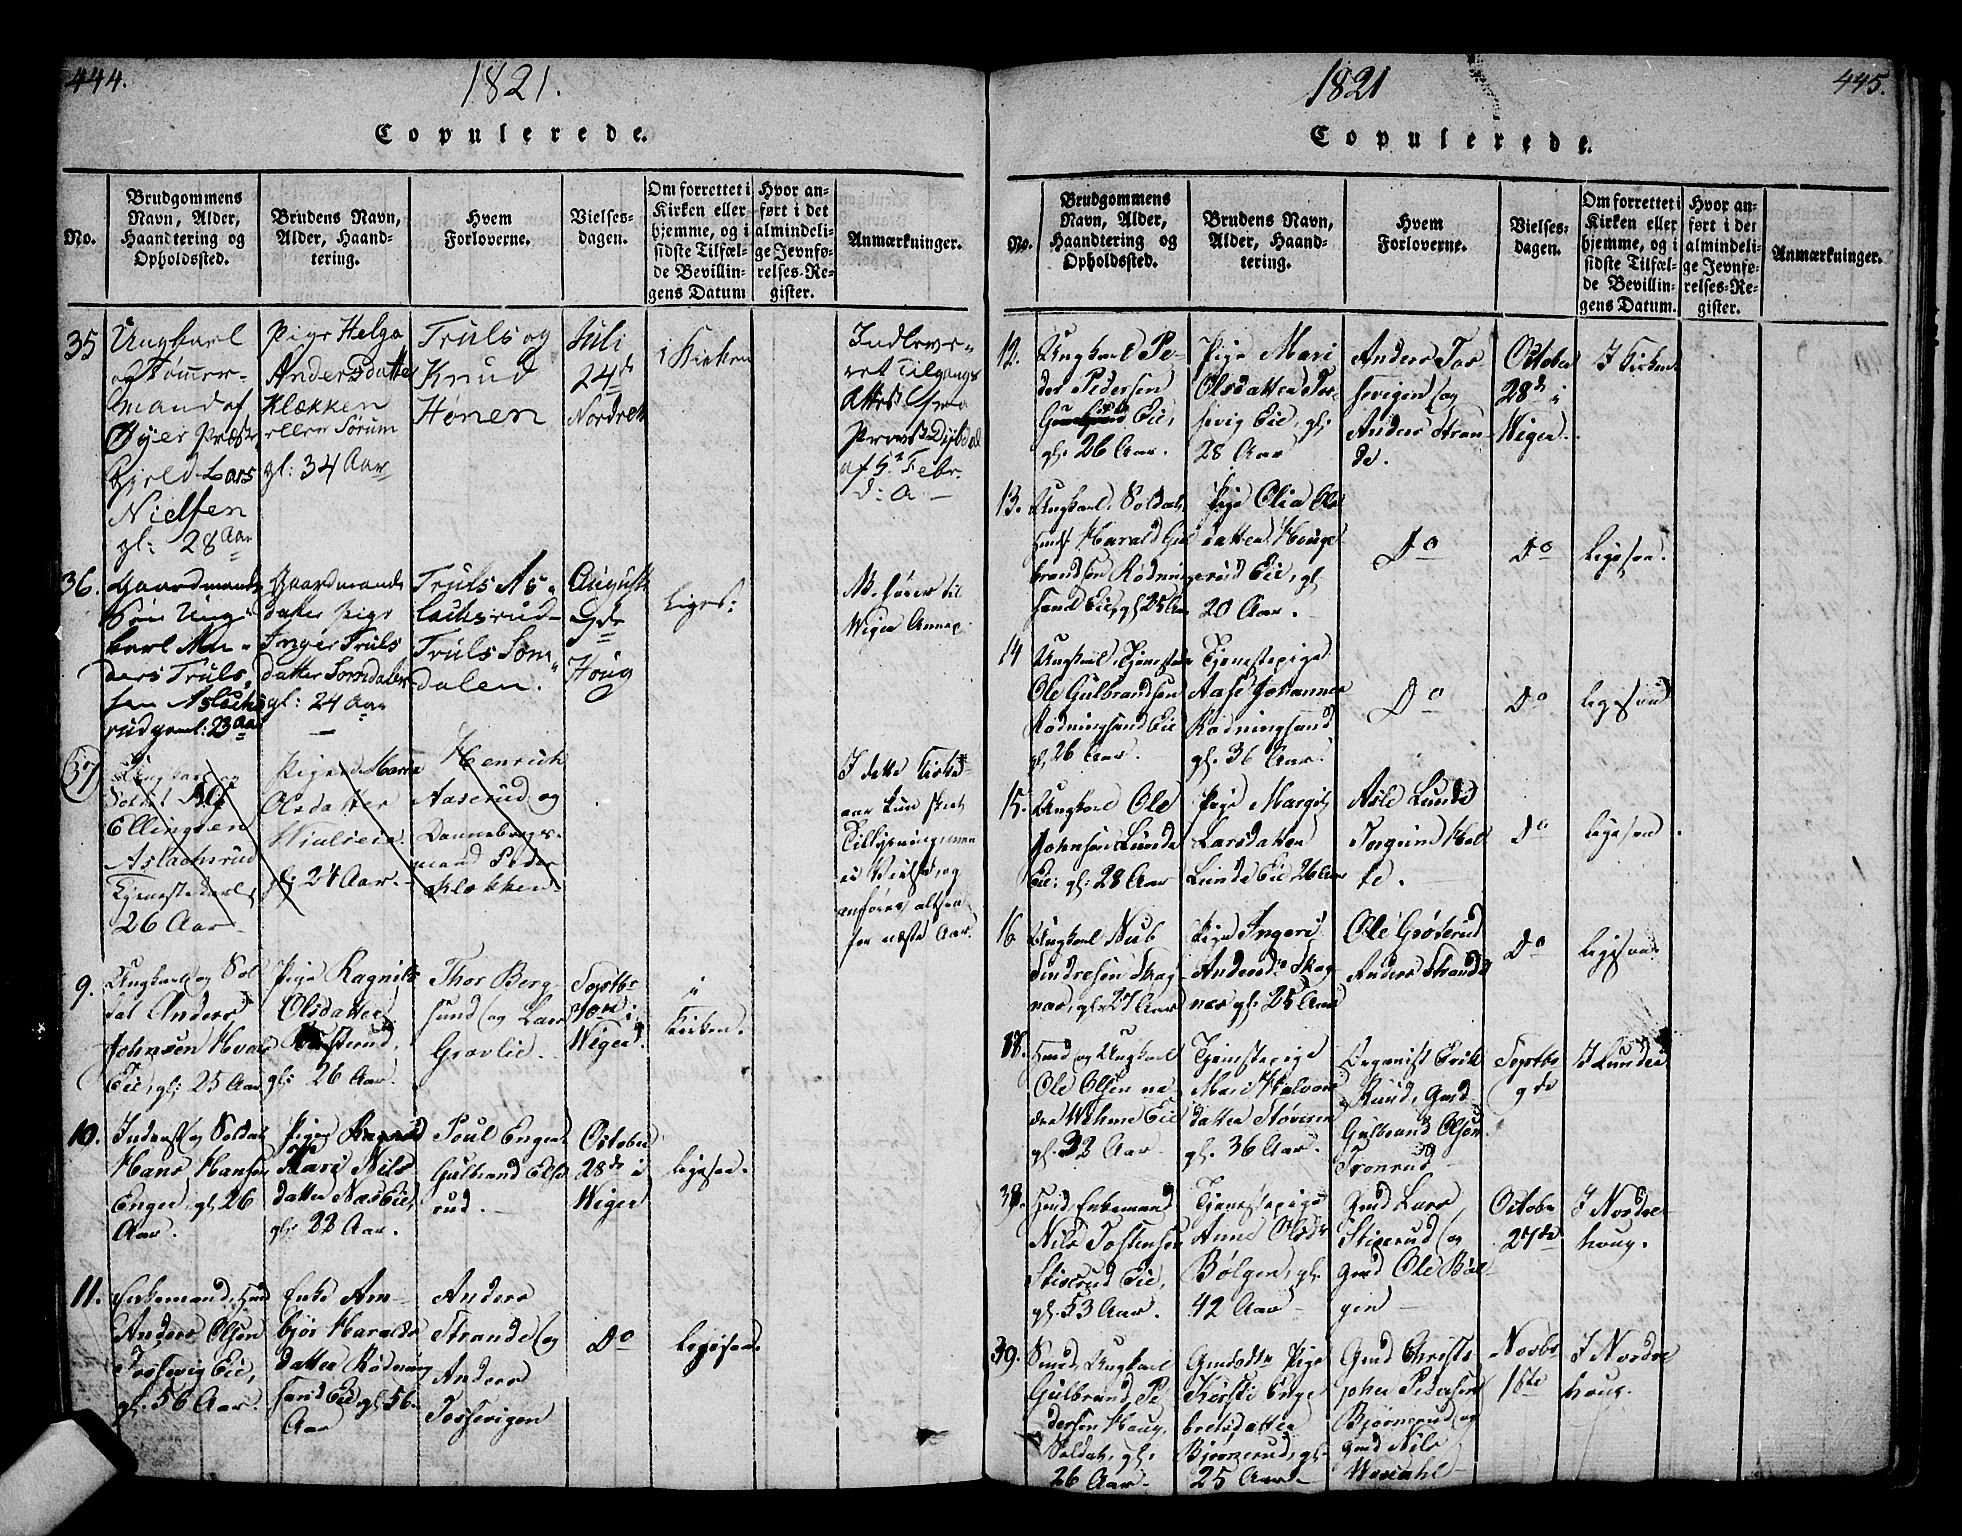 444.
1821.
Copulerede.
No.
Brudgommens
Navn, Alder,
Haandtering og
Opholdssted.
Brudens Navn,
Alder, Haand-
tering.
Hvem
Forloverne.
Vielses-
dagen.
Om forrettet i
Kirken eller
hjemme, og i
sidste Tilfæl-
de Bevillin-
gens Datum
Hvor an-
ført i det
almindeli-
ge Jevnfø-
relses-Re-
gister.
Anmærkninger.
35
Ungkarl
og Tømmer-
mand af
Øyer Præste
Gjeld Lars
Nielsen
gl: 28 Aar
Pige Helga
Andersdatter
Klækken
eller Sørum
gl: 34 Aar
Truls og
Knud
Hønen
Juli
24de
Nordreh
i Kirken
Indleve-
ret Tilgangs
Attest fra
Provst
af 5t Febr.
d: A.
36.
Gaardmands
Søn Ung-
karl An-
ders Truls-
sen Aslachs
rud gaml: 23 Aar
Gaardmands
datter Pige
Inger Truls
datter Somdalen
gl: 24 Aar
Truls As-
lachsrud
Truls Som-
dalen.
August
Houg
Liges:
NB. hører til
Wiger Annex
37
Ungkarl og
Soldat
Ellingsen
Aslachsrud
Tjenestekarl
26 Aar
Pige Maria
Olsdatter
gl: 24 Aar.
Henrich
Aaserud og
Danneborgs-
mand Peder
Klækken
I dette Kirke-
aar kun skeet
Tillysningerne
ei Vielse, og
anføres altsaa
for næste Aar.
9.
Ungkarl og Sol
dat Anders
Johnsen Hval
Eie, gl: 25 Aar
Pige Ragnild
Olsdatter
gl: 26 Aar.
Thor Berg-
sund og Lars
Gravlie.
Septbr
30te i
Wiger.
i
Kirken.
10.
Inderst og Soldat
Hans Hansen
Enger, gl. 26
Aar.
Pige
Kari Nils
datter Næs Eie,
gl: 22 Aar.
Poul Enger
Gulbrand Else
rud.
October
28de i
Wiger
Ligesaa.
11.
Enkemand,
Anders Olsen
Tossevig Eie,
gl. 56 Aar.
Enke Am-
bjør Haralds
datter Rødning
sand Eie, gl. 56
Aar
Anders
Strande og
Anders
Tossevigen
Do
Ligesaa.
1821
445.
Copulerede.
No.
Brudgommens
Navn, Alder,
Haandtering og
Opholdssted.
Brudens Navn,
Alder, Haand-
tering.
Hvem
Forloverne.
Vielses-
dagen.
Om forrettet i
Kirken eller
hjemme, og i
sidste Tilfæl-
de Bevillin-
gens Datum.
Hvor an-
ført i det
almindeli-
ge Jevnfø-
relses-Re-
gister.
Anmærkninger.
12.
Ungkarl Pe-
der Pedersen
Eie,
gl. 26 Aar.
Pige Mari
Olsdatter Tos-
sevig Eie, gl:
28 Aar
Anders Tos
sevigen og
Anders Stran-
de.
October
28de i
Wiger.
I Kirken
13.
Ungkarl, Soldat,
Harald Gul
brandsen Rødning
sand Eie, gl. 25 Aar
Pige Olia Ols
datter Houge
rud Eie, gl.
20 Aar.
Do
Do
Ligesaa.
14
Ungkarl, Tjenestekarl
Ole Gulbrandsen
Rødningsand Eie
gl. 26 Aar.
Tjenestepige
Aase Johannes
Rødningsand
gl. 36 Aar.
Do
Do
Ligesaa
15.
Ungkarl Ole
Johnsen Lunde
Eie, gl. 28 Aar
Pige Margit
Larsdatter
Lunde Eie 26 Aar
Asle Lunde
Torgrim Hol
te.
Do
Ligesaa.
16
Ungkarl Nub
Sindresen Skag
næs, gl. 27 Aar
Pige Ingeri
Andersd. Skag
næs gl. 25 Aar
Ole Grøterud
Anders Strande
Do
Ligesaa.
Ungkarl
Ole Olsen ne
dre Wehme Eie
gl. 32 Aar
Tjenestepige
Mari Halvors
datter Støveren
gl. 36 Aar.
Organist Erik
Ruud, Gmd
Gulbrand Olsen
Tronrud
Septbr
9de
I Lunder
38.
Enkemand
Nils Tostensen
Stiserud Eie,
gl. 53 Aar.
Tjenestepige
Anne Olsdtr
Bølgen, gl.
42 Aar
Gmd Lars
Stiserud og
Gmd Ole Bøl-
gen
October
27de
I Nordre-
houg.
39.
Ungkarl
Gulbrand Pe
dersen Houg,
Soldat, gl.
26 Aar.
Gmdsdtr Pige
Kersti Enge
bretsdatter
Bjørnerud, gl.
25 Aar
Gmd Christo
pher Pedersen
Bjørnerud og
Gmd Nils
Novbr
16de
I Nordre
houg.